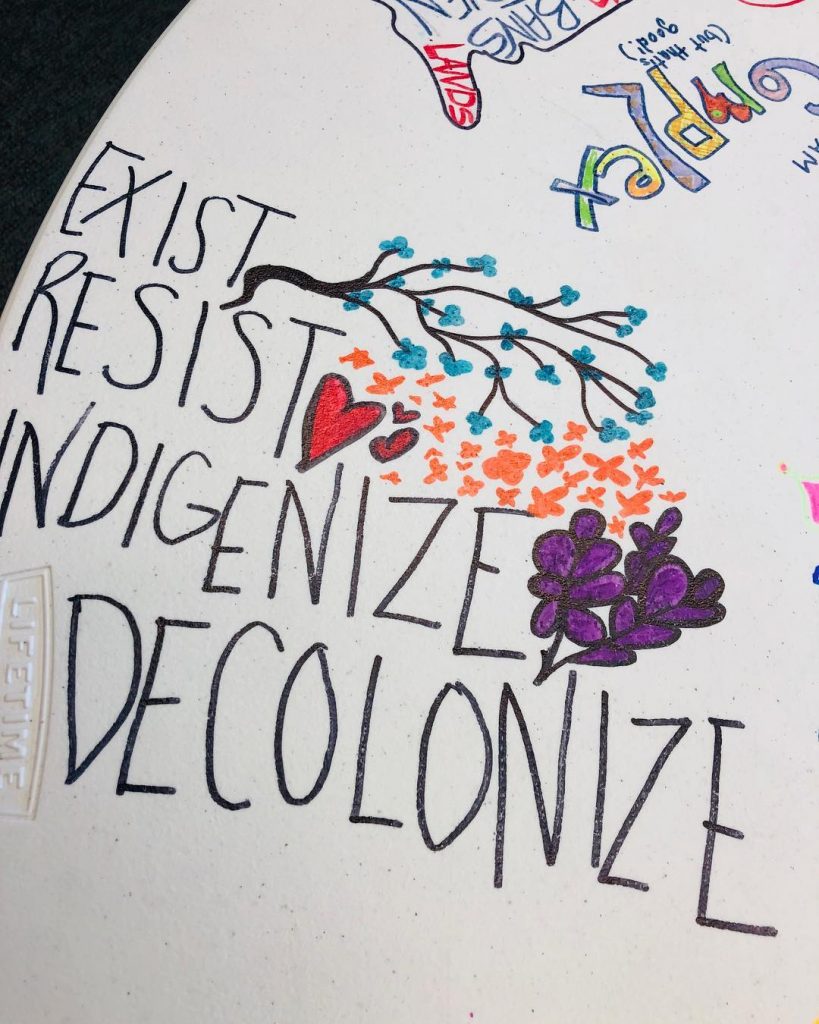 EXIST
RESIST
INDIGENIZE
DECOLONIZE
LIFETIME
BANS
LANDS
Complex
(but that's
good!)
AM